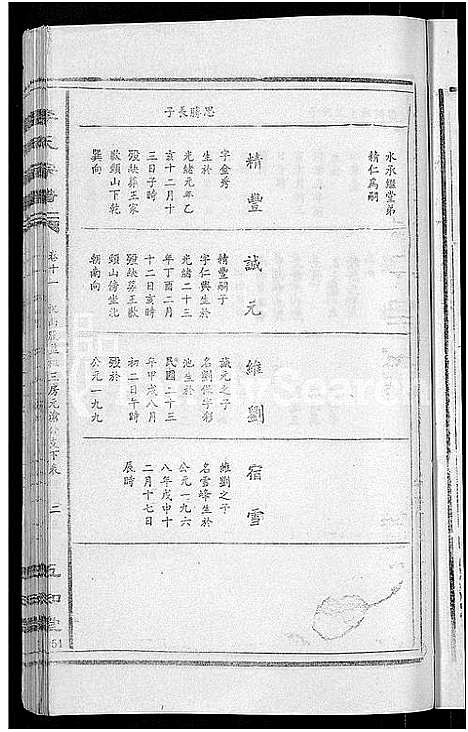 思勝長子
水承繼堂弟
精仁為嗣
精豐
字金秀
生於
光緒元年乙
亥十二月十
三日子時
歿缺葬王家
畝頭山下乾
巽向
誠元
精豐嗣子
字仁興生於
光緒二十三
年丁酉二月
十二日亥時
歿缺葬王畝
頭山傍坐北
朝南向
維劉
誠元之子
名劉保字彩
池生於
民國二十三
年甲戌八月
初二日午時
歿於
公元一九九
宿雪
維劉之子
名雪峰生於
公元一九六
八年戊申十
二月十七日
辰時
卷十一
三房元
下表
二
五知堂
51